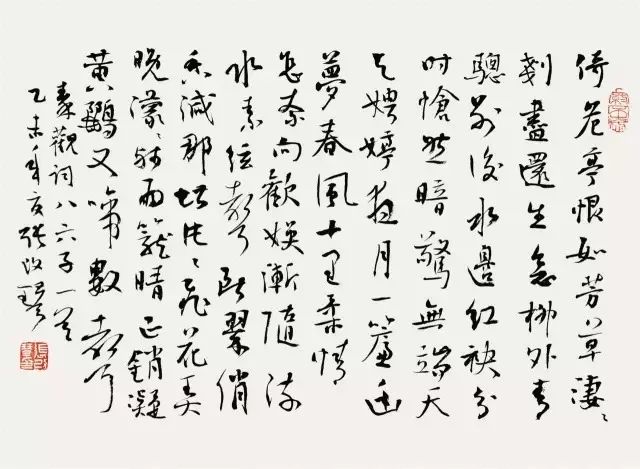 倚危亭恨如芳草淒〻
剗盡還生念柳外青
驄別後水邊紅袂分
時愴然暗驚無端天
与娉婷夜月一簾幽
夢春風十里柔情
怎奈向歡娛漸隨流
水素弦聲断翠綃
香減那堪片〻飛花弄
晚濛〻残雨籠晴正銷凝
黄鸝又啼數聲
秦觀詞八六子一首
乙未年夏張改琴